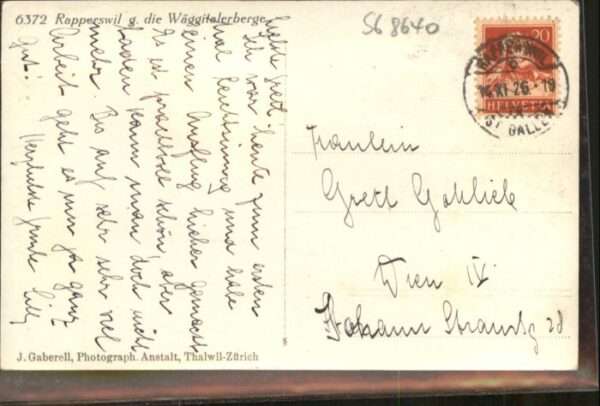 6372 Rapperswil g. die Wäggitalerberge
SG 8640
20
14.XI.26.-18
ST GALLEN
HELVETIA
Fräulein
Gretl Gottlieb
Wien IV
Johann Straussg 28
Liebste Gretl
Ich war heute zum ersten
mal und habe
einen Ausflug hieher gemacht
Es ist prachtvoll schön, aber
baden kann man doch nicht
mehr. Bis auf sehr sehr viel
Arbeit geht es mir ja ganz
gut.
Herzlichste Grüsse Lilly
J. Gaberell, Photograph. Anstalt, Thalwil-Zürich